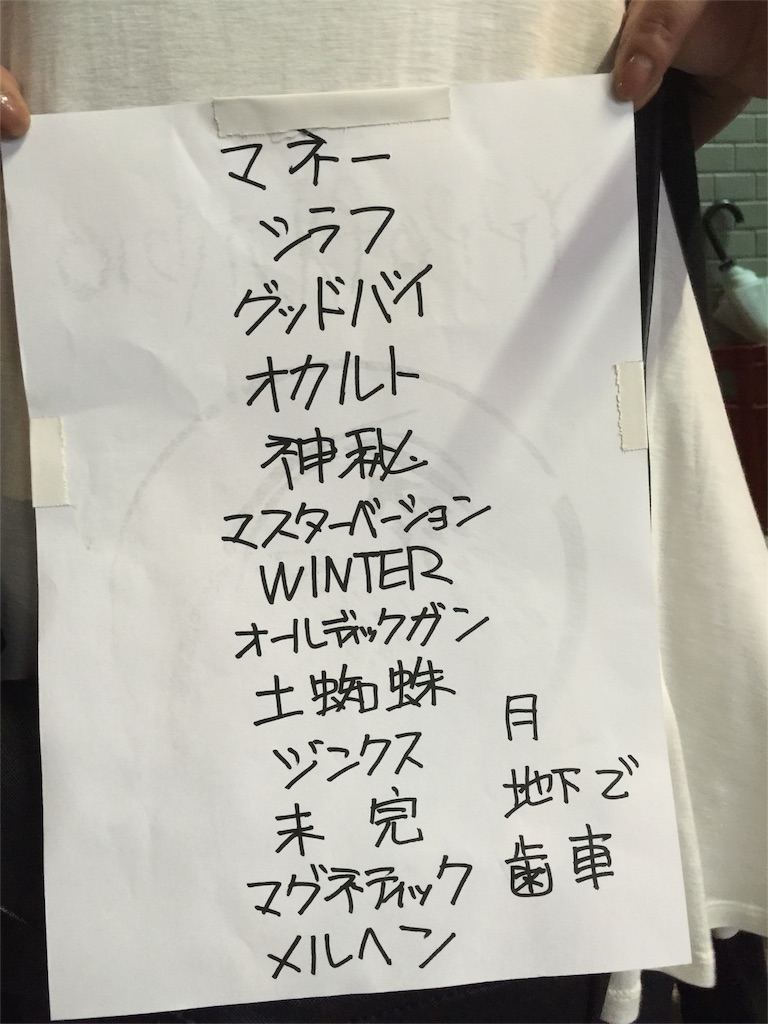 マネー
シラフ
グッドバイ
オカルト
神秘
マスターベーション
WINTER
オールディックガン
土蜘蛛
ジンクス
未完
マグネティック
メルヘン
月
地下で
歯車